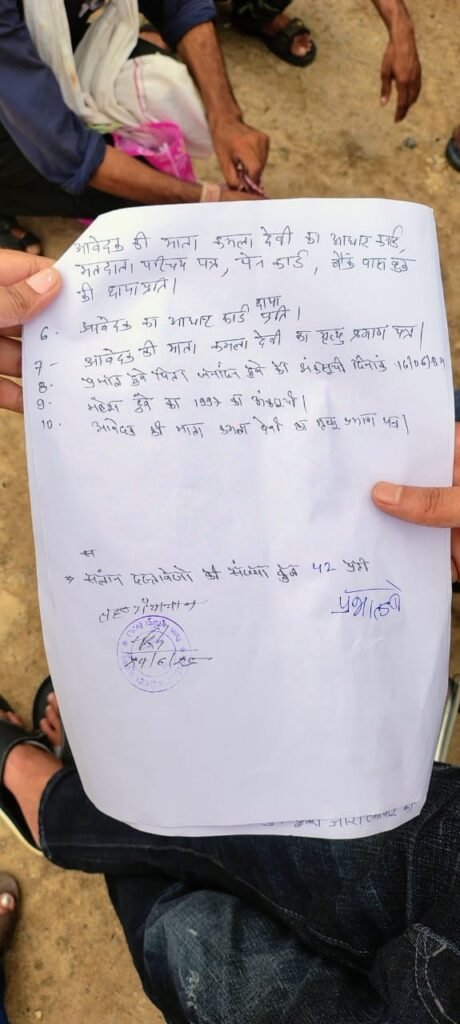 आवेदक की माता कमला देवी का आधार कार्ड,
मतदाता परिचय पत्र, पेन कार्ड, बैंक पास बुक
की छायाप्रति।
6. आवेदक का आधार कार्ड छाया प्रति।
7- आवेदक की माता कमला देवी का मृत्यु प्रमाण पत्र।
8. प्रभात दुबे पिता जनार्दन दुबे की अंकसूची दिनांक 16/06/
9. महेश दुबे का 1997 का अंकसूची।
10. आवेदक की माता कमला देवी का मृत्यु प्रमाण पत्र।
संलग्न दस्तावेजो की संख्या कुल 42 प्रति